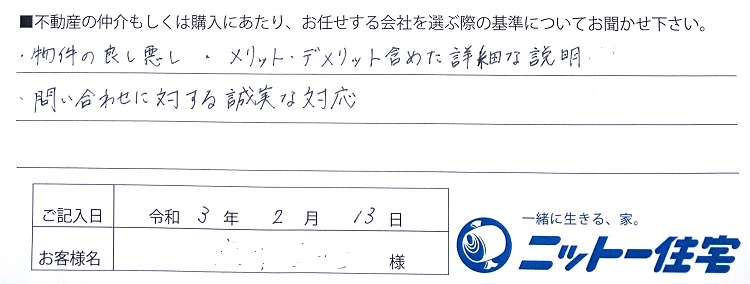 ■不動産の仲介もしくは購入にあたり、お任せする会社を選ぶ際の基準についてお聞かせ下さい。
・物件の良し悪し ・ メリット・デメリット含めた詳細な説明
・問い合わせに対する誠実な対応
ご記入日 令和 3 年 2 月 13 日
お客様名 様
一緒に生きる、家。
ニットー住宅